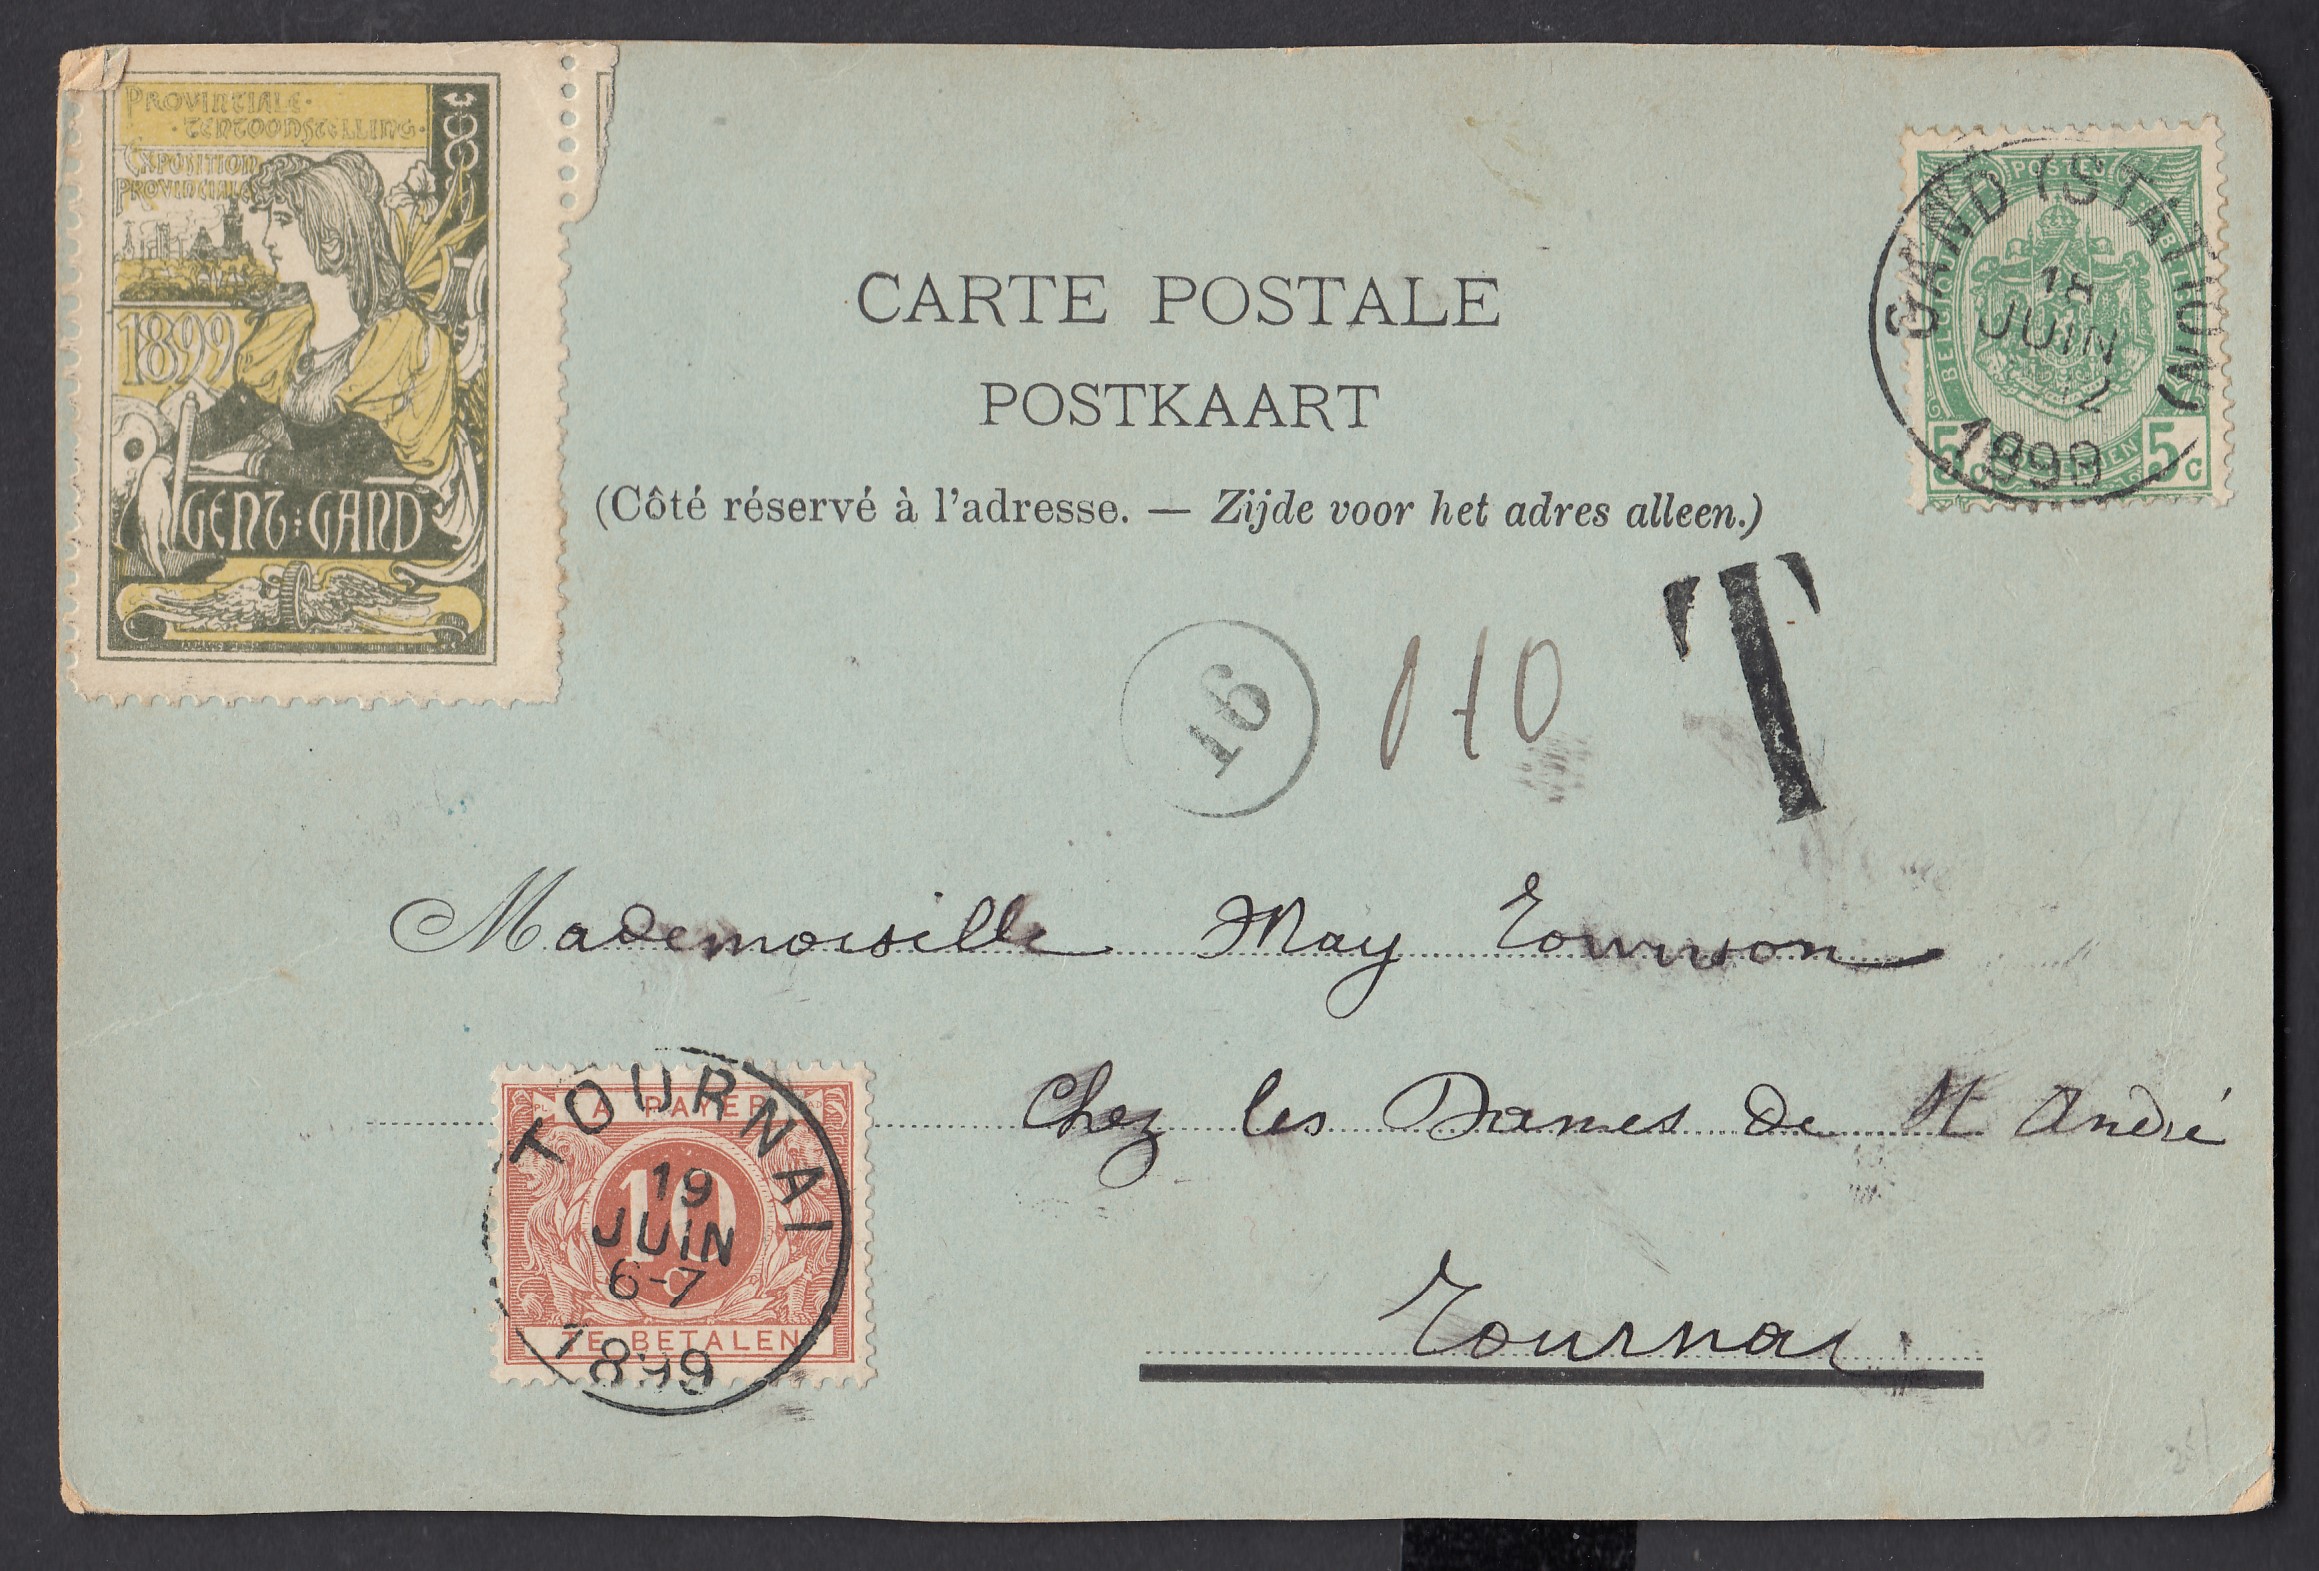 PROVINCIALE
TENTOONSTELLING
EXPOSITION
PROVINCIALE
1899
GENT : GAND
CARTE POSTALE
POSTKAART
(Côté réservé à l'adresse. — Zijde voor het adres alleen.)
POSTES
BELGIQUE
5 c
5 c
GAND (STATION)
18
JUIN
12
1899
16
T
Mademoiselle May
Chez les Dames de St André
Tournai
A PAYER
10
c
TE BETALEN
TOURNAI
19
JUIN
6-7
1899